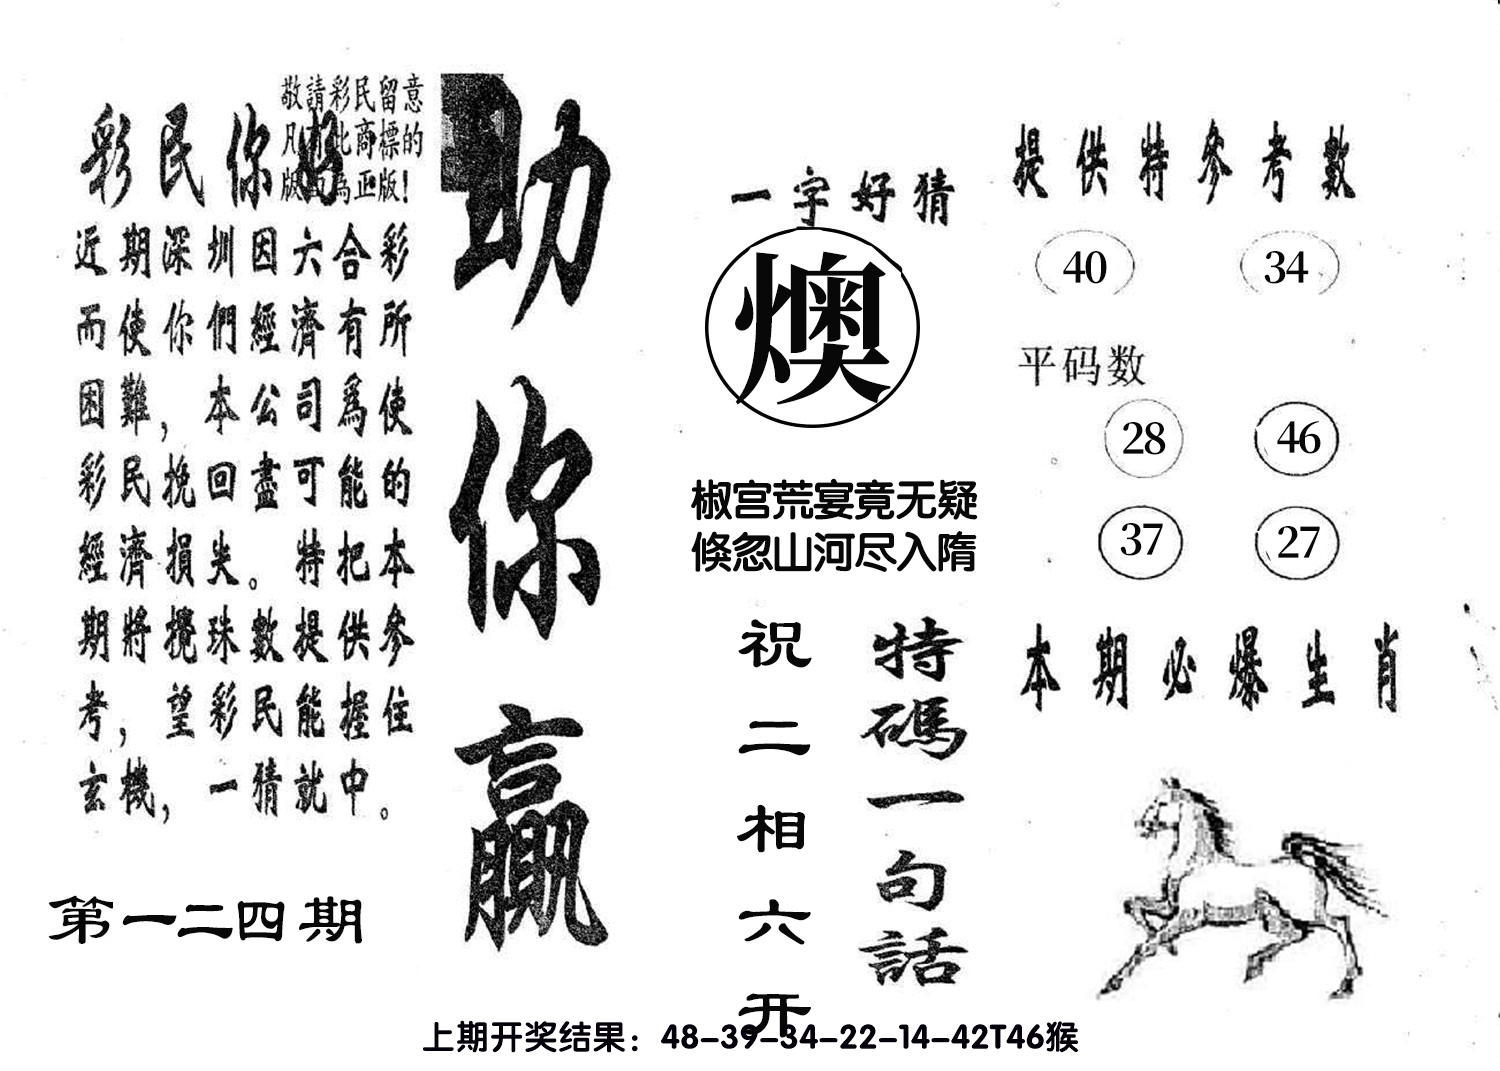 敬請彩民留意
凡有此商標的
版面為正版！
彩民你好
近期深圳因六合彩
而使你們經濟有所
困難，本公司爲使
彩民挽回盡可能的
經濟損失。特把本
期將攪珠數提供參
考，望彩民能握住
玄機，一猜就中。
第一二四期
助你贏
一字好猜
燠
椒宫荒宴竟无疑
倏忽山河尽入隋
特碼一句話
祝二相六开
提供特參考數
40 34
平码数
28 46
37 27
本期必爆生肖
上期开奖结果：48-39-34-22-14-42T46猴